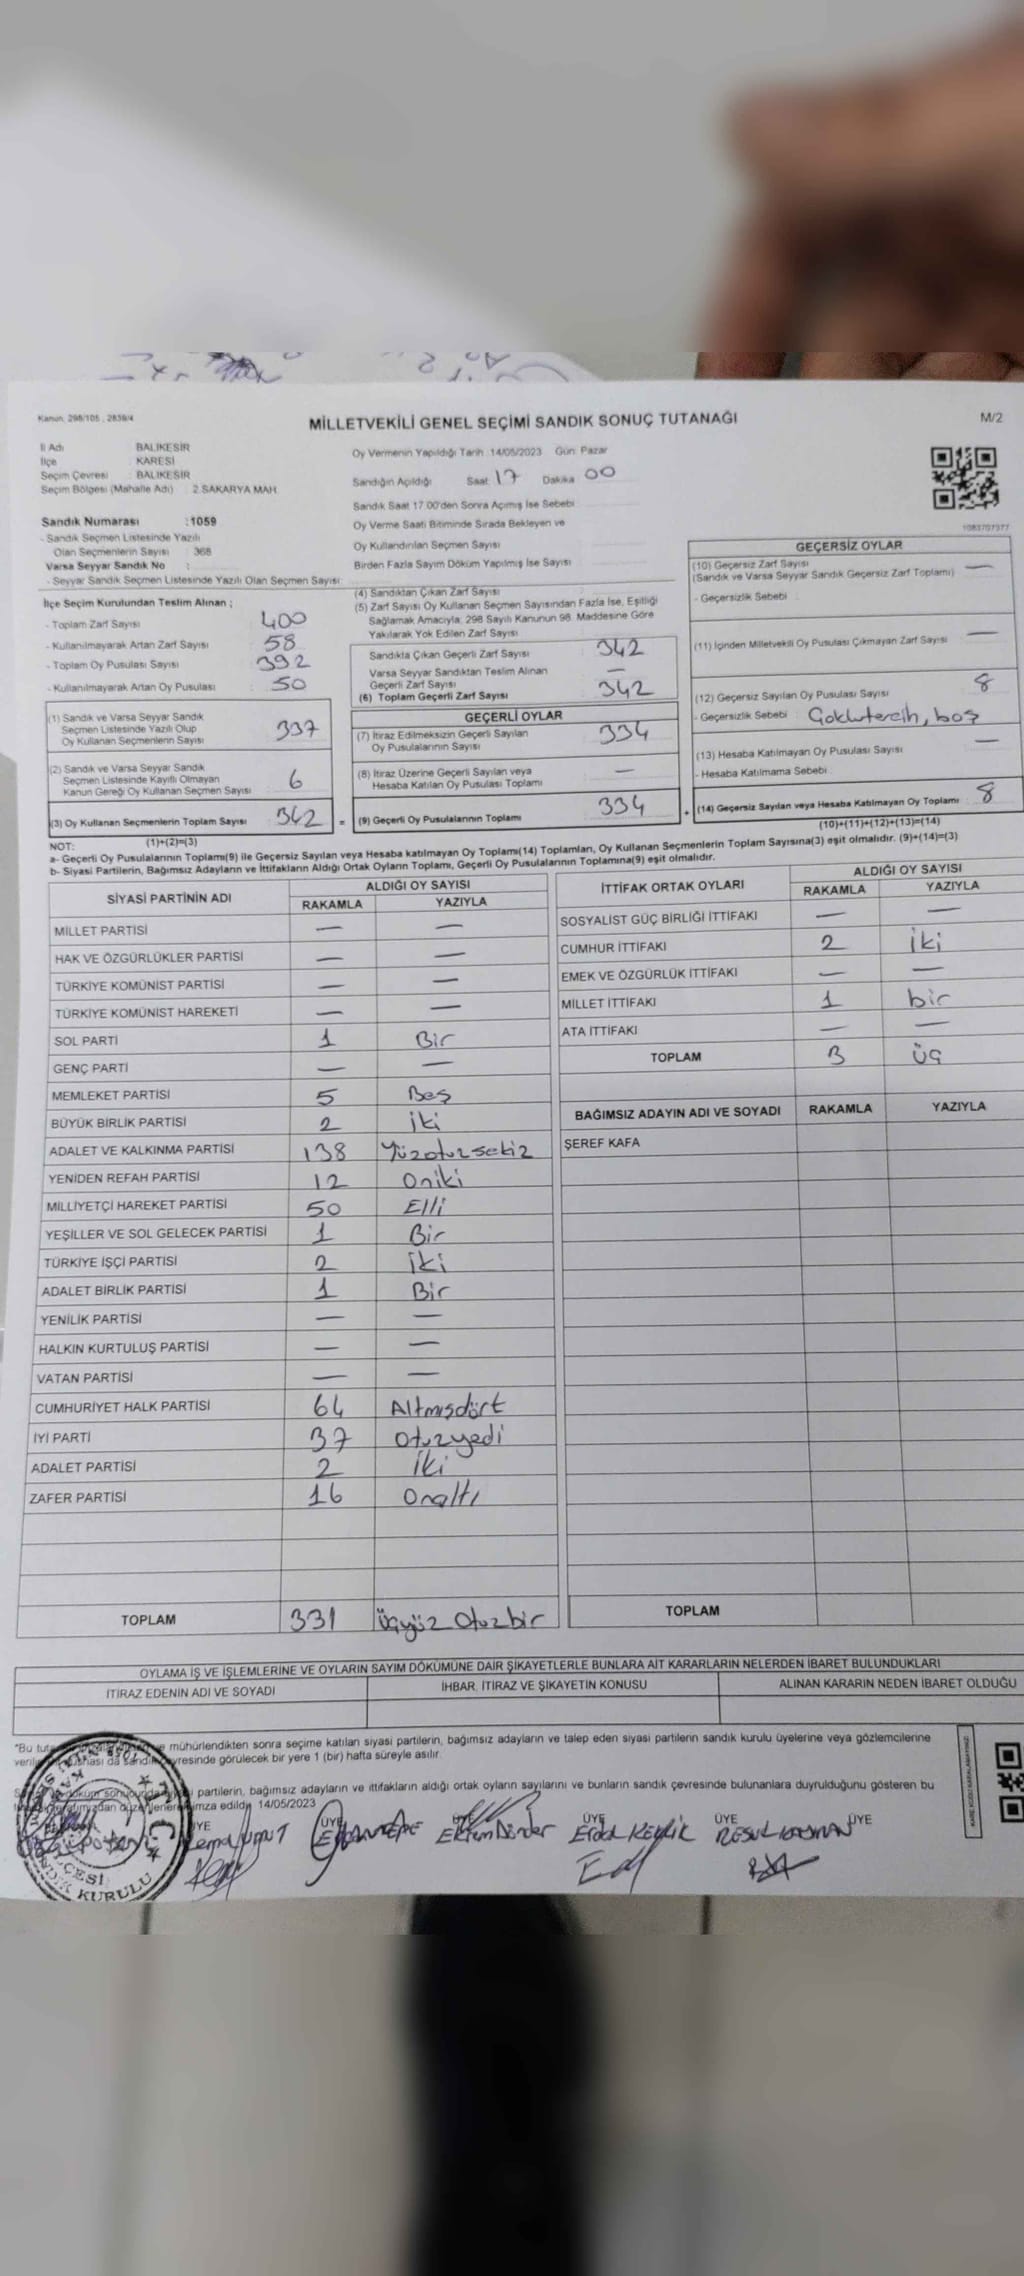 Kanun, 298/105 , 2839/4
MİLLETVEKİLİ GENEL SEÇİMİ SANDIK SONUÇ TUTANAĞI
M/2
İl Adı : BALIKESİR
İlçe : KARESİ
Seçim Çevresi : BALIKESİR
Seçim Bölgesi (Mahalle Adı) : 2.SAKARYA MAH.
Sandık Numarası :1059
- Sandık Seçmen Listesinde Yazılı
Olan Seçmenlerin Sayısı : 368
Varsa Seyyar Sandık No :
- Seyyar Sandık Seçmen Listesinde Yazılı Olan Seçmen Sayısı:
Oy Vermenin Yapıldığı Tarih :14/05/2023 Gün: Pazar
Sandığın Açıldığı Saat: 17 Dakika 00
Sandık Saat 17.00'den Sonra Açımış İse Sebebi
Oy Verme Saati Bitiminde Sırada Bekleyen ve
Oy Kullandırılan Seçmen Sayısı
Birden Fazla Sayım Döküm Yapılmış İse Sayısı
1083707377
İlçe Seçim Kurulundan Teslim Alınan ;
- Toplam Zarf Sayısı : 400
- Kullanılmayarak Artan Zarf Sayısı : 58
- Toplam Oy Pusulası Sayısı : 392
- Kullanılmayarak Artan Oy Pusulası : 50
(1) Sandık ve Varsa Seyyar Sandık
Seçmen Listesinde Yazılı Olup
Oy Kullanan Seçmenlerin Sayısı : 337
(2) Sandık ve Varsa Seyyar Sandık
Seçmen Listesinde Kayıtlı Olmayan
Kanun Gereği Oy Kullanan Seçmen Sayısı : 6
(3) Oy Kullanan Seçmenlerin Toplam Sayısı : 342
(1)+(2)=(3)
(4) Sandıktan Çıkan Zarf Sayısı
(5) Zarf Sayısı Oy Kullanan Seçmen Sayısından Fazla İse, Eşitliği
Sağlamak Amacıyla, 298 Sayılı Kanunun 98. Maddesine Göre
Yakılarak Yok Edilen Zarf Sayısı
Sandıkta Çıkan Geçerli Zarf Sayısı : 342
Varsa Seyyar Sandıktan Teslim Alınan
Geçerli Zarf Sayısı : —
(6) Toplam Geçerli Zarf Sayısı : 342
GEÇERLİ OYLAR
(7) İtiraz Edilmeksizin Geçerli Sayılan
Oy Pusulalarının Sayısı : 334
(8) İtiraz Üzerine Geçerli Sayılan veya
Hesaba Katılan Oy Pusulası Toplamı : —
= (9) Geçerli Oy Pusulalarının Toplamı : 334 +
GEÇERSİZ OYLAR
(10) Geçersiz Zarf Sayısı : —
(Sandık ve Varsa Seyyar Sandık Geçersiz Zarf Toplamı)
- Geçersizlik Sebebi :
(11) İçinden Milletvekili Oy Pusulası Çıkmayan Zarf Sayısı : —
(12) Geçersiz Sayılan Oy Pusulası Sayısı : 8
- Geçersizlik Sebebi : Çoklutercih, boş
(13) Hesaba Katılmayan Oy Pusulası Sayısı : —
- Hesaba Katılmama Sebebi :
(14) Geçersiz Sayılan veya Hesaba Katılmayan Oy Toplamı : 8
(10)+(11)+(12)+(13)=(14)
NOT:
a- Geçerli Oy Pusulalarının Toplamı(9) ile Geçersiz Sayılan veya Hesaba katılmayan Oy Toplamı(14) Toplamları, Oy Kullanan Seçmenlerin Toplam Sayısına(3) eşit olmalıdır. (9)+(14)=(3)
b- Siyasi Partilerin, Bağımsız Adayların ve İttifakların Aldığı Ortak Oyların Toplamı, Geçerli Oy Pusulalarının Toplamına(9) eşit olmalıdır.
SİYASİ PARTİNİN ADI ALDIĞI OY SAYISI
RAKAMLA YAZIYLA
MİLLET PARTİSİ — —
HAK VE ÖZGÜRLÜKLER PARTİSİ — —
TÜRKİYE KOMÜNİST PARTİSİ — —
TÜRKİYE KOMÜNİST HAREKETİ — —
SOL PARTİ 1 Bir
GENÇ PARTİ — —
MEMLEKET PARTİSİ 5 Beş
BÜYÜK BİRLİK PARTİSİ 2 iki
ADALET VE KALKINMA PARTİSİ 138 Yüzotuzsekiz
YENİDEN REFAH PARTİSİ 12 Oniki
MİLLİYETÇİ HAREKET PARTİSİ 50 Elli
YEŞİLLER VE SOL GELECEK PARTİSİ 1 Bir
TÜRKİYE İŞÇİ PARTİSİ 2 iki
ADALET BİRLİK PARTİSİ 1 Bir
YENİLİK PARTİSİ — —
HALKIN KURTULUŞ PARTİSİ — —
VATAN PARTİSİ — —
CUMHURİYET HALK PARTİSİ 64 Altmışdört
İYİ PARTİ 37 Otuzyedi
ADALET PARTİSİ 2 İki
ZAFER PARTİSİ 16 Onaltı
TOPLAM 331 Üçyüz Otuzbir
İTTİFAK ORTAK OYLARI ALDIĞI OY SAYISI
RAKAMLA YAZIYLA
SOSYALİST GÜÇ BİRLİĞİ İTTİFAKI — —
CUMHUR İTTİFAKI 2 İki
EMEK VE ÖZGÜRLÜK İTTİFAKI — —
MİLLET İTTİFAKI 1 bir
ATA İTTİFAKI — —
TOPLAM 3 Üç
BAĞIMSIZ ADAYIN ADI VE SOYADI RAKAMLA YAZIYLA
ŞEREF KAFA
TOPLAM
OYLAMA İŞ VE İŞLEMLERİNE VE OYLARIN SAYIM DÖKÜMÜNE DAİR ŞİKAYETLERLE BUNLARA AİT KARARLARIN NELERDEN İBARET BULUNDUKLARI
İTİRAZ EDENİN ADI VE SOYADI İHBAR, İTİRAZ VE ŞİKAYETİN KONUSU ALINAN KARARIN NEDEN İBARET OLDUĞU
"Bu mühürlendikten sonra seçime katılan siyasi partilerin, bağımsız adayların ve talep eden siyasi partilerin sandık kurulu üyelerine veya gözlemcilerine
da sandık çevresinde görülecek bir yere 1 (bir) hafta süreyle asılır.
partilerin, bağımsız adayların ve ittifakların aldığı ortak oyların sayılarını ve bunların sandık çevresinde bulunanlara duyrulduğunu gösteren bu
imza edildi. 14/05/2023
ÜYE ÜYE ÜYE ÜYE ÜYE ÜYE
Erdal RESUL
T.C.
SANDIK KURULU